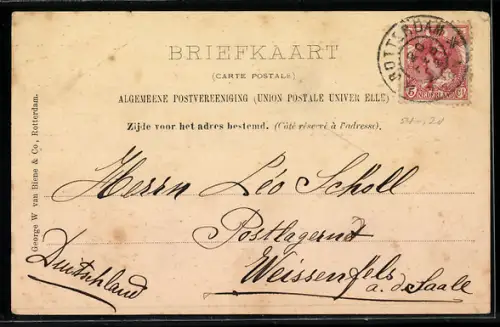 BRIEFKAART
(CARTE POSTALE)
ALGEMEENE POSTVEREENIGING (UNION POSTALE UNIVER ELLE)
Zijde voor het adres bestemd. (Côté réservé à l'adresse).
ROTTERDAM
5 NEDERLAND
Herrn Léo Scholl
Postlagernd
Weissenfels
a. d. Saale
Duitschland
George W van Biene & Co, Rotterdam.